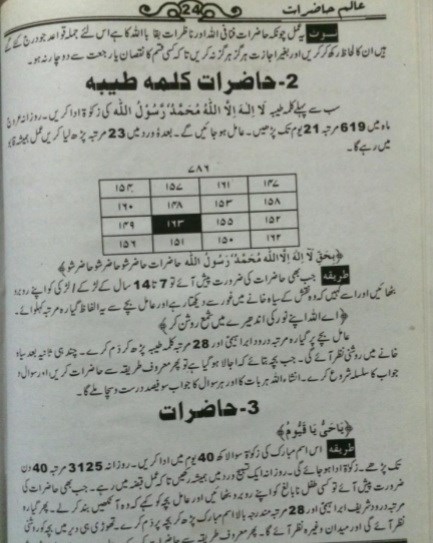 عالم حاضرات
24
نوٹ یہ عمل چونکہ حاضرات فنا فی اللہ اور ناظرات بقا باللہ کا ہے اس لئے جملہ قواعد جو درج کئے گئے
ہیں ان کا لحاظ رکھ کر کریں اور بغیر اجازت ہرگز ہرگز نہ کریں تاکہ کسی قسم کا نقصان یا رجعت سے دوچار نہ ہو۔
2- حاضرات کلمہ طیبہ
سب سے پہلے کلمہ طیبہ لَا اِلٰهَ اِلَّا اللّٰهُ مُحَمَّدٌ رَّسُوْلُ اللّٰه کی زکوٰۃ ادا کریں۔ روزانہ عروج
ماہ میں 619 مرتبہ 21 یوم تک پڑھیں۔ عامل ہو جائیں گے۔ بعدہٗ ورد میں 23 مرتبہ پڑھ لیا کریں عمل ہمیشہ قابو
میں رہے گا۔
۷۸۶
۱۵۴ ۱۵۷ ۱۶۱ ۱۴۷
۱۶۰ ۱۴۸ ۱۵۳ ۱۵۸
۱۴۹ ۱۶۳ ۱۵۵ ۱۵۲
۱۵۶ ۱۵۱ ۱۵۰ ۱۶۲
﴿بِحَقِّ لَا اِلٰهَ اِلَّا اللّٰه مُحَمَّدٌ رَّسُوْلُ اللّٰه حاضرات حاضر شو حاضر شو حاضر شو﴾
طریقہ جب بھی حاضرات کی ضرورت پیش آئے تو 7 تا 14 سال کے لڑکے لڑکی کو اپنے روبرو
بٹھائیں اور اسے کہیں کہ وہ نقش کے سیاہ خانے میں غور سے دیکھتا رہے اور عامل بچے سے یہ الفاظ گیارہ مرتبہ کہلوائے۔
﴿اے اللہ اپنے نور کی اندھیرے میں شمع روشن کر﴾
عامل بچے پر گیارہ مرتبہ درود ابراہیمی اور 28 مرتبہ کلمہ طیبہ پڑھ کر دم کرے۔ چند ہی ثانیہ بعد سیاہ
خانے میں روشنی نظر آئے گی۔ جب بچہ بتائے کہ اجالا ہو گیا ہے تو پھر معروف طریقہ سے حاضرات کریں اور سوال و
جواب کا سلسلہ شروع کرے۔ انشاءاللہ ہر بات کا اور ہر سوال کا جواب سو فیصد درست و سچا ملے گا۔
3- حاضرات
﴿يَا حَىُّ يَا قَيُّوْمُ﴾
طریقہ اس اسم مبارک کی زکوٰۃ سوا لاکھ 40 یوم میں ادا کریں۔ روزانہ 3125 مرتبہ 40 دن
تک پڑھے۔ زکوٰۃ ادا ہو جائے گی۔ روزانہ ایک تسبیح ورد میں ہمیشہ رکھیں تاکہ عمل قبضہ میں رہے۔ جب بھی حاضرات کی
ضرورت پیش آئے تو کسی طفل نابالغ کو اپنے روبرو بٹھائیں اور عامل بچہ کو کہے کہ وہ آنکھیں بند کر لے۔ پھر گیارہ
مرتبہ درود شریف ابراہیمی اور 28 مرتبہ مندرجہ بالا اسم مبارک پڑھ کر بچہ پر دم کرے۔ تھوڑی ہی دیر میں بچہ کو روشنی
نظر آئے گی اور میدان وغیرہ نظر آئے گا۔ پھر معروف طریقہ سے حاضرات